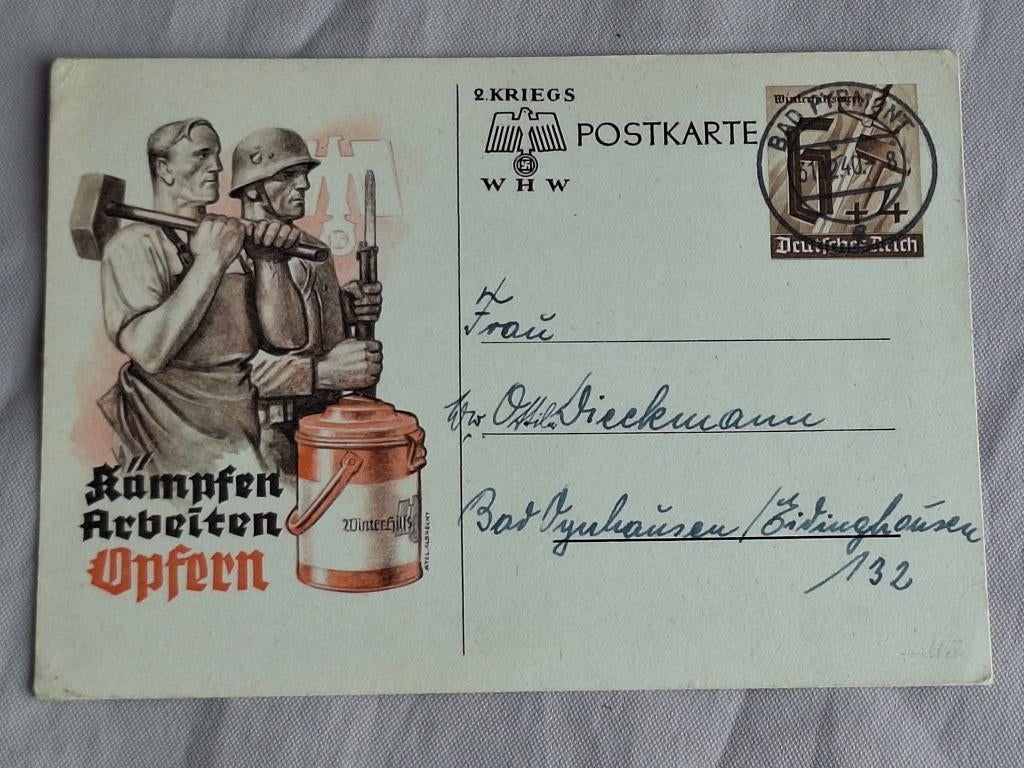 2.KRIEGS
WHW
POSTKARTE
Winterhilfswerk
6+4
Deutsches Reich
BAD PYRMONT
Kämpfen
Arbeiten
Opfern
Winterhilfs
ATEL.ALBRECHT
Frau
Dieckmann
Bad Oynhausen/Eidinghausen
132